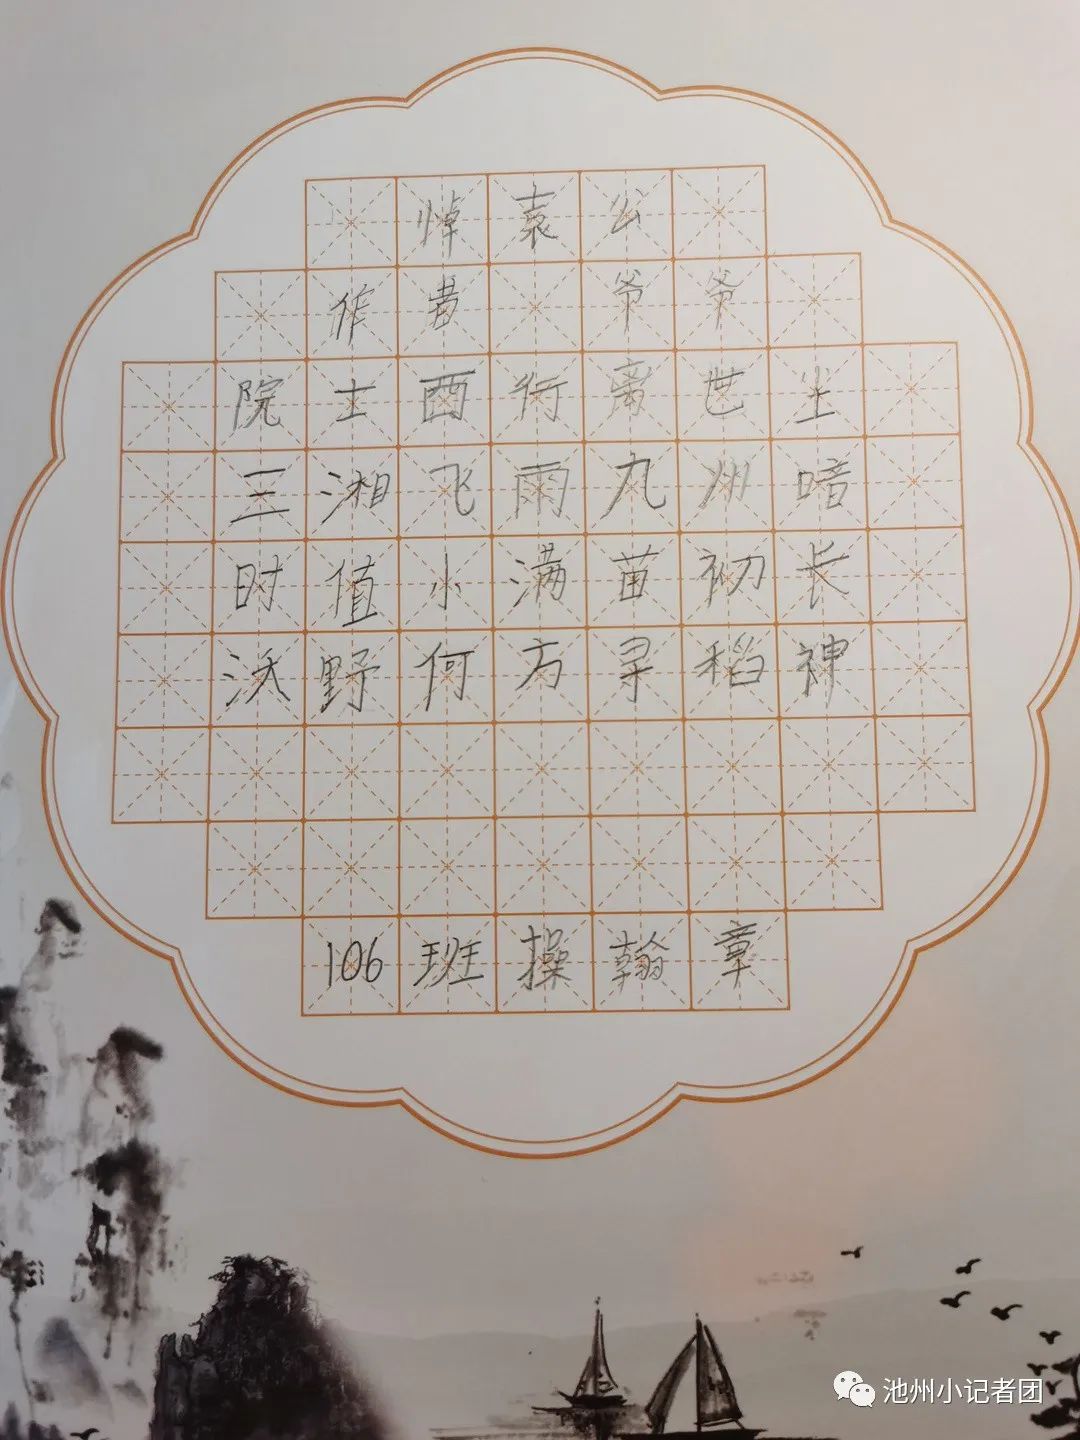 悼袁公
作者 爷爷
院士酉行离世尘
三湘飞雨九州喑
时值小满苗初长
沃野何方寻稻神
106班操翰章
池州小记者团